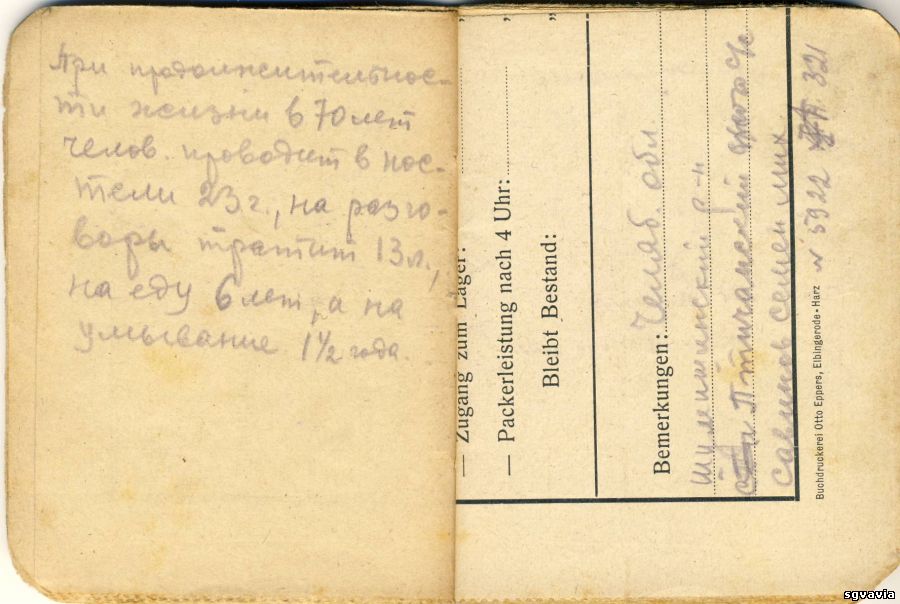 При продолжительнос-
ти жизни в 70 лет
челов. проводит в пос-
тели 23 г., на разго-
воры тратит 13 л.,
на еду 6 лет, а на
умывание 1½ года.
— Zugang zum Lager:
— Packerleistung nach 4 Uhr:
Bleibt Bestand:
Bemerkungen: Челяб. обл.
Шумихинский р-н
Птичанский с/с
Савинов Семен Мих.
N 5922 321
Buchdruckerei Otto Eppers, Elbingerode-Harz
sgvavia